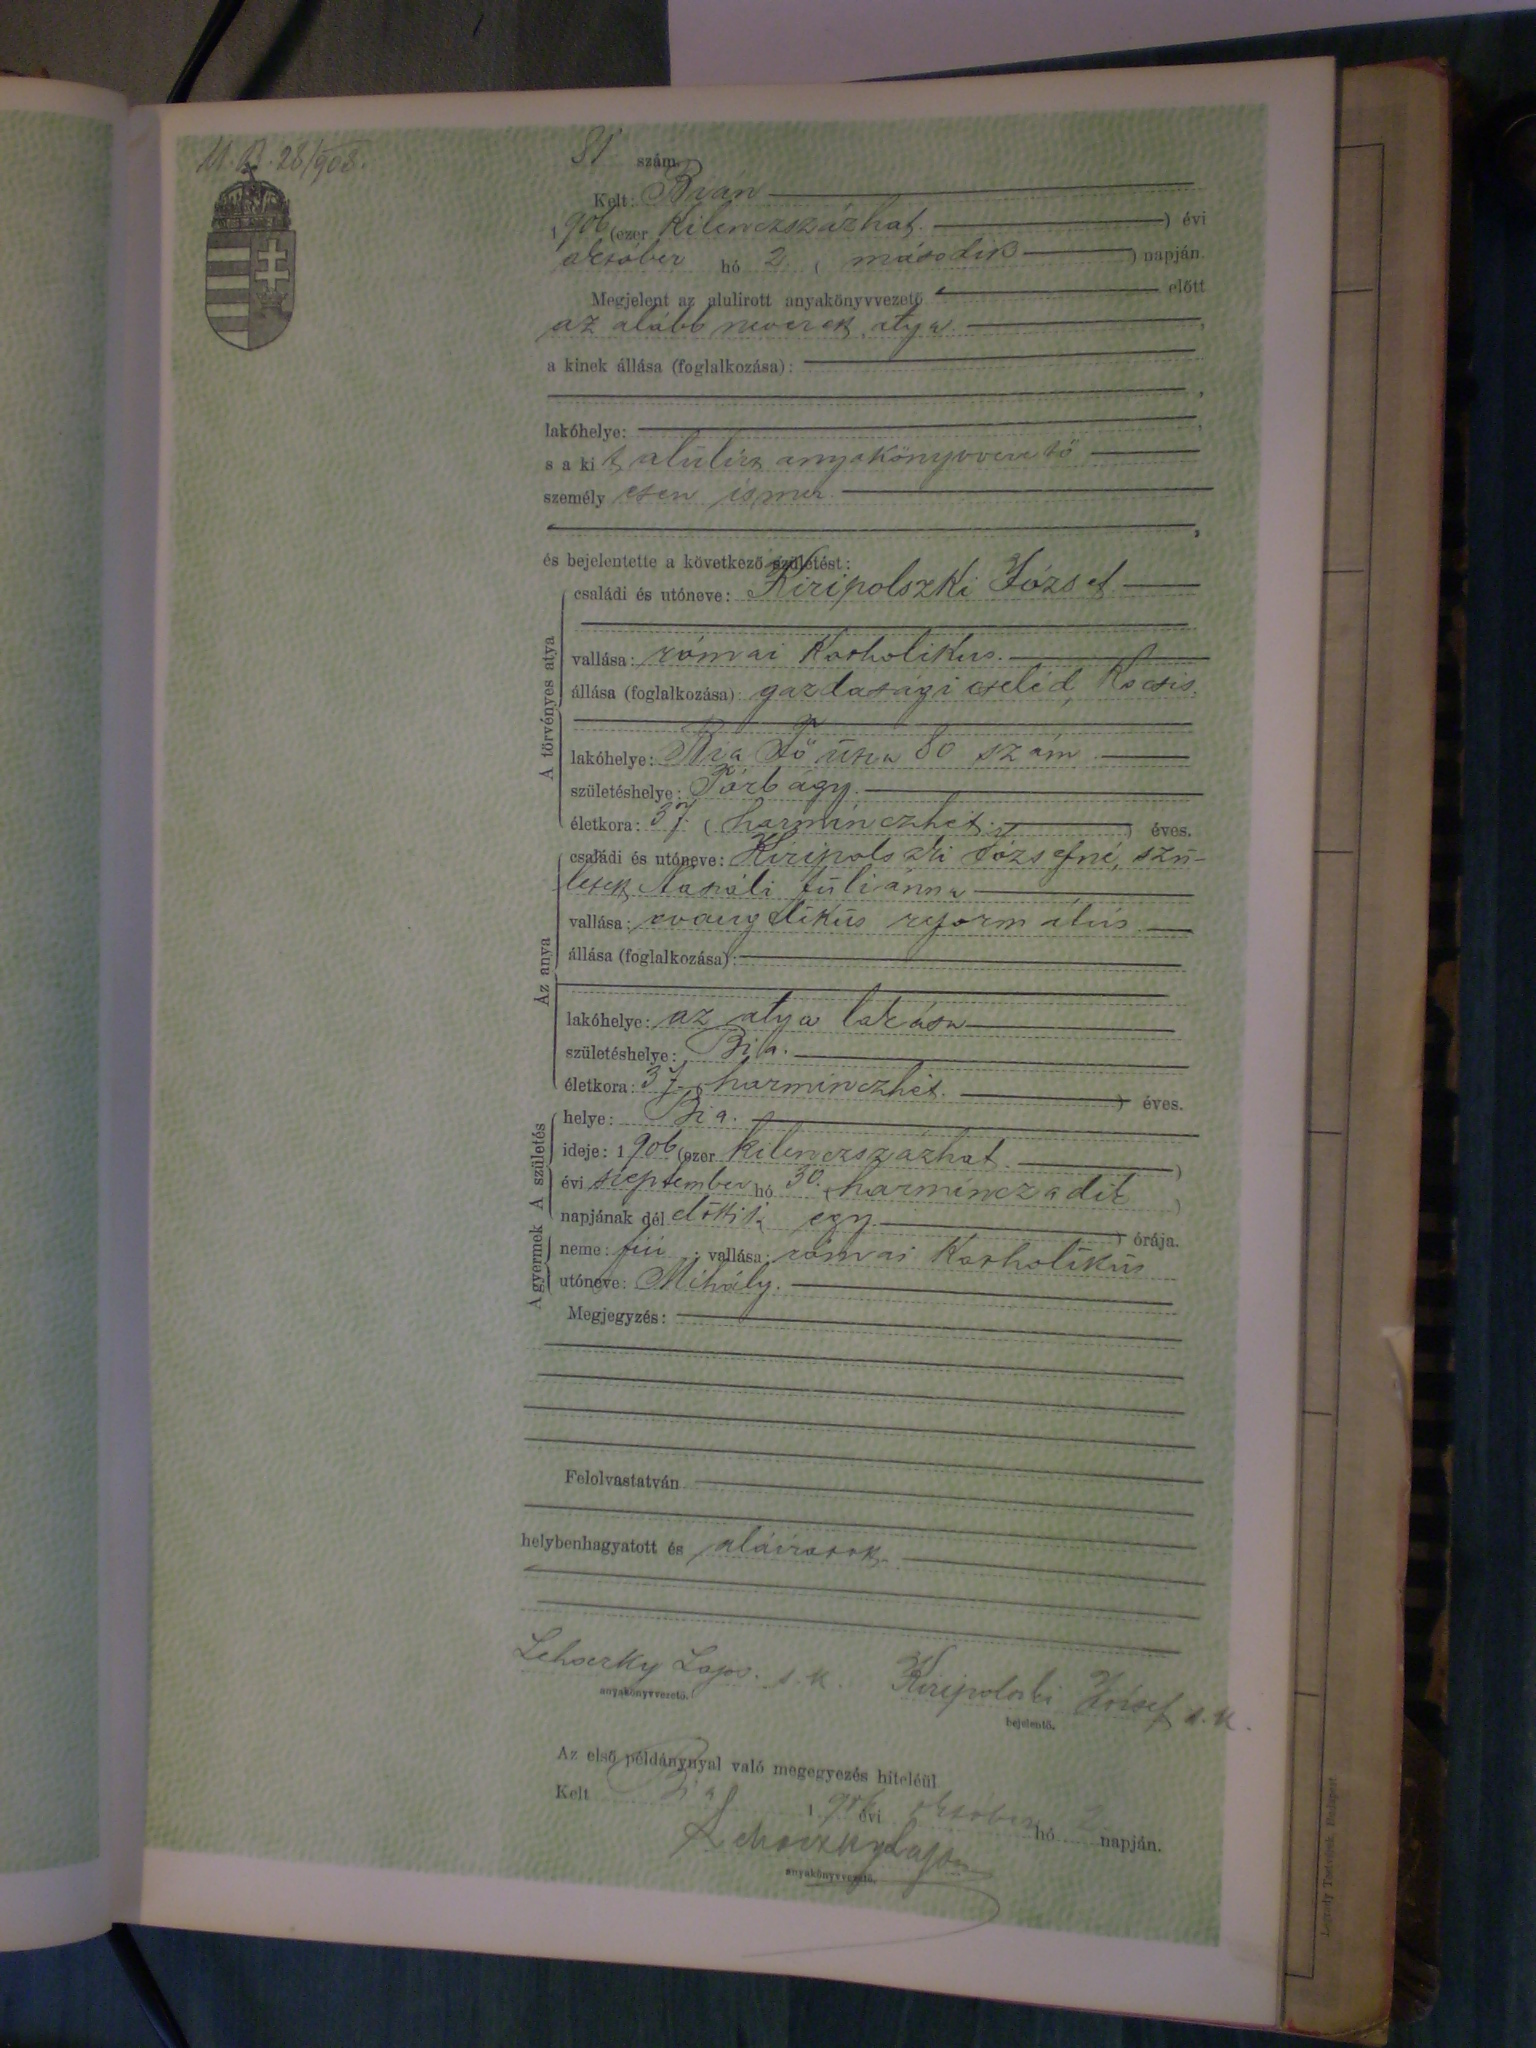 M. B. 28/908.
81 szám.
Kelt: Bián
1906 (ezer kilenczszázhat ) évi
október hó 2 ( második ) napján.
Megjelent az alulirott anyakönyvvezető előtt
az alább nevezett atya ,
a kinek állása (foglalkozása):
,
lakóhelye: ,
s a kit alulirt anyakönyvvezető
személyesen ismer.
,
és bejelentette a következő születést:
A törvényes atya
családi és utóneve: Kiripolszki József
vallása: római katholikus.
állása (foglalkozása): gazdasági cseléd, kocsis.
lakóhelye: Bia Fő utca 80 szám
születéshelye: Torbágy.
életkora: 37. ( harminczhét. ) éves.
Az anya
családi és utóneve: Kiripolszki Józsefné, szü-
letett Julianna
vallása: evangelikus református.
állása (foglalkozása):
lakóhelye: az atya lakása
születéshelye: Bia.
életkora: 37. ( harminczhét. ) éves.
A születés
helye: Bia.
ideje: 1906 (ezer kilenczszázhat. )
évi szeptember hó 30. ( harminczadik )
napjának dél előtti egy ) órája.
A gyermek
neme: fiú ; vallása: római katholikus
utóneve: Mihály.
Megjegyzés:
Felolvastatván
helybenhagyatott és aláiratott.
Lehoczky Lajos. s. k. Kiripolszki József s. k.
anyakönyvvezető. bejelentő.
Az első példánynyal való megegyezés hiteléül
Kelt Bia 1906 évi október hó 2 napján.
Lehoczky Lajos
anyakönyvvezető.